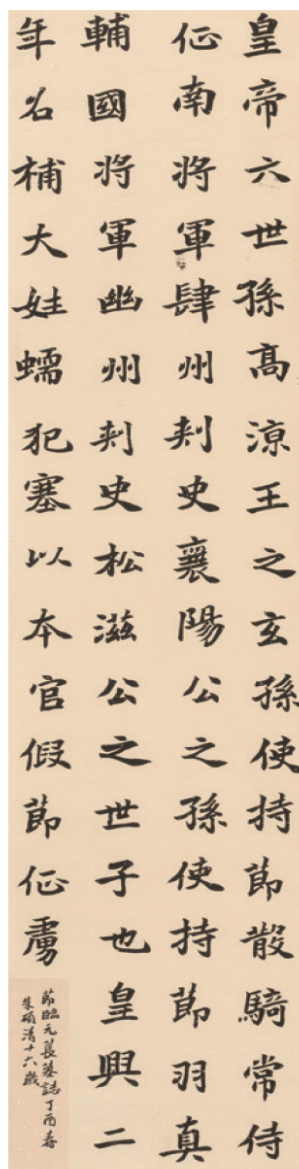 皇帝六世孫高涼王之玄孫使持節散騎常侍
征南將軍肆州刺史襄陽公之孫使持節羽真
輔國將軍幽州刺史松滋公之世子也皇興二
年名補大姓蠕犯塞以本官假節征虜
節臨元萇墓誌丁酉春
朱碩清十六歲